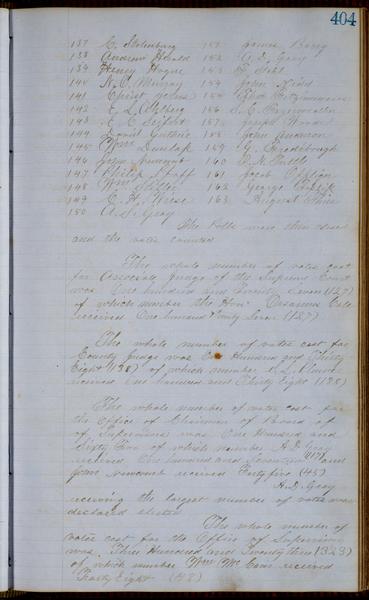 404
137 C. Stolenburg 151 James Barry
138 Andrew Herald 152 A. D. Gray
139 Henry Hogue 153
140 N. C. Murray 154 John Kidd
141 Christ 155
142 E. L. 156 S. C.
143 E. C. Seifert 157 Joseph
144 David Guthrie 158 John Anderson
145 Wm Dunlap 159 G.
146 John Armount 160 D. N. Tuttle
147 Philip Staff 161 Jacob
148 Wm Stiller 162 George
149 C. H. Wiese 163 August
150 A. S. Gray
The Polls were then closed
and the votes counted
The whole number of votes cast
for Associate Judge of the Supreme Court
was One hundred and Twenty Seven (127)
of which number the Hon Orsamus Cole
received One hundred Twenty Seven (127)
The whole number of votes cast for
County Judge was One Hundred and Thirty
Eight (138) of which number
received One hundred and Thirty Eight (138)
The whole number of votes cast for
the Office of Chairman of Board of
of Supervisors was One Hundred and
Sixty Two of which number A. D. Gray
received One hundred and Seventeen (117) and
John Armount received Forty five (45)
A. D. Gray
receiving the largest number of votes was
declared elected
The whole number of
votes cast for the Office of Supervisor
was Three Hundred and Twenty three (323)
of which number Wm Mc received
Forty Eight (48)